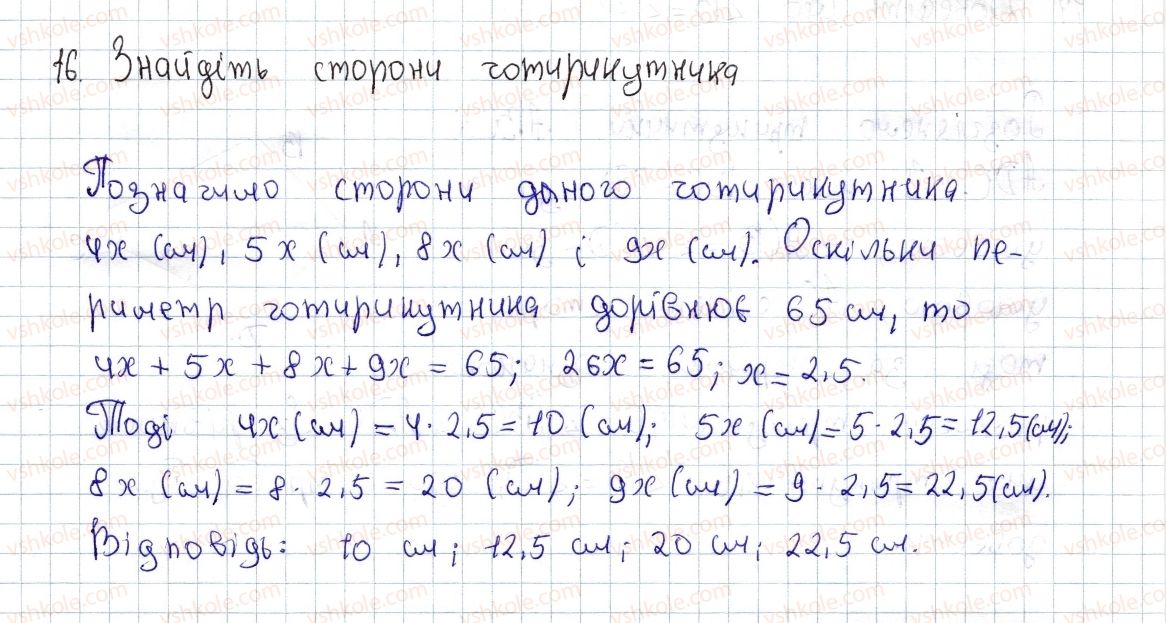 16. Знайдіть сторони чотирикутника
Позначимо сторони даного чотирикутника
4x (см), 5x (см), 8x (см) і 9x (см). Оскільки пе-
риметр чотирикутника дорівнює 65 см, то
4x + 5x + 8x + 9x = 65; 26x = 65; x = 2,5.
Тоді 4x (см) = 4 · 2,5 = 10 (см); 5x (см) = 5 · 2,5 = 12,5 (см);
8x (см) = 8 · 2,5 = 20 (см); 9x (см) = 9 · 2,5 = 22,5 (см).
Відповідь: 10 см; 12,5 см; 20 см; 22,5 см.